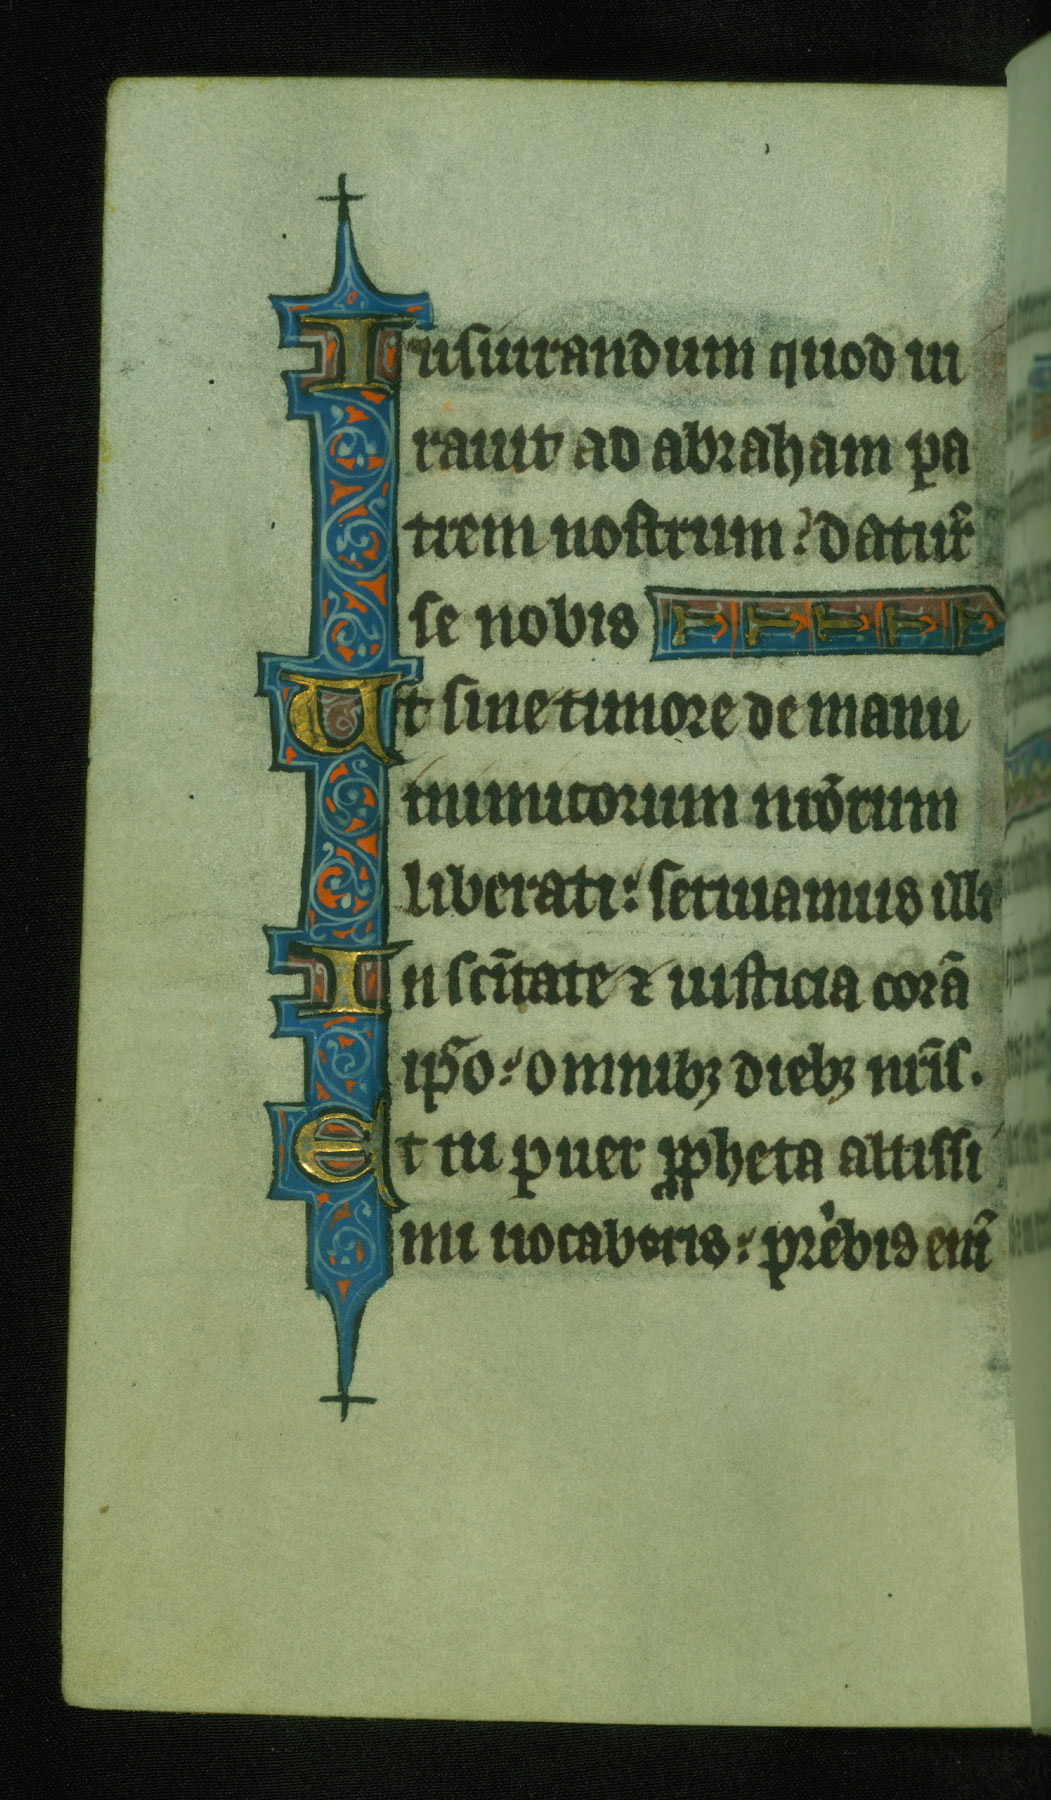 Iusiurandum quod iu
rauit ad abraham pa
trem nostrum : daturū
se nobis
Ut sine timore de manu
inimicorum nrōrum
liberati : seruiamus illi
In scītate ⁊ iusticia corā
ip̄o : omnibꝫ diebꝫ nrīs .
Et tu puer ꝓpheta altissi
mi uocaberis : preibis enī